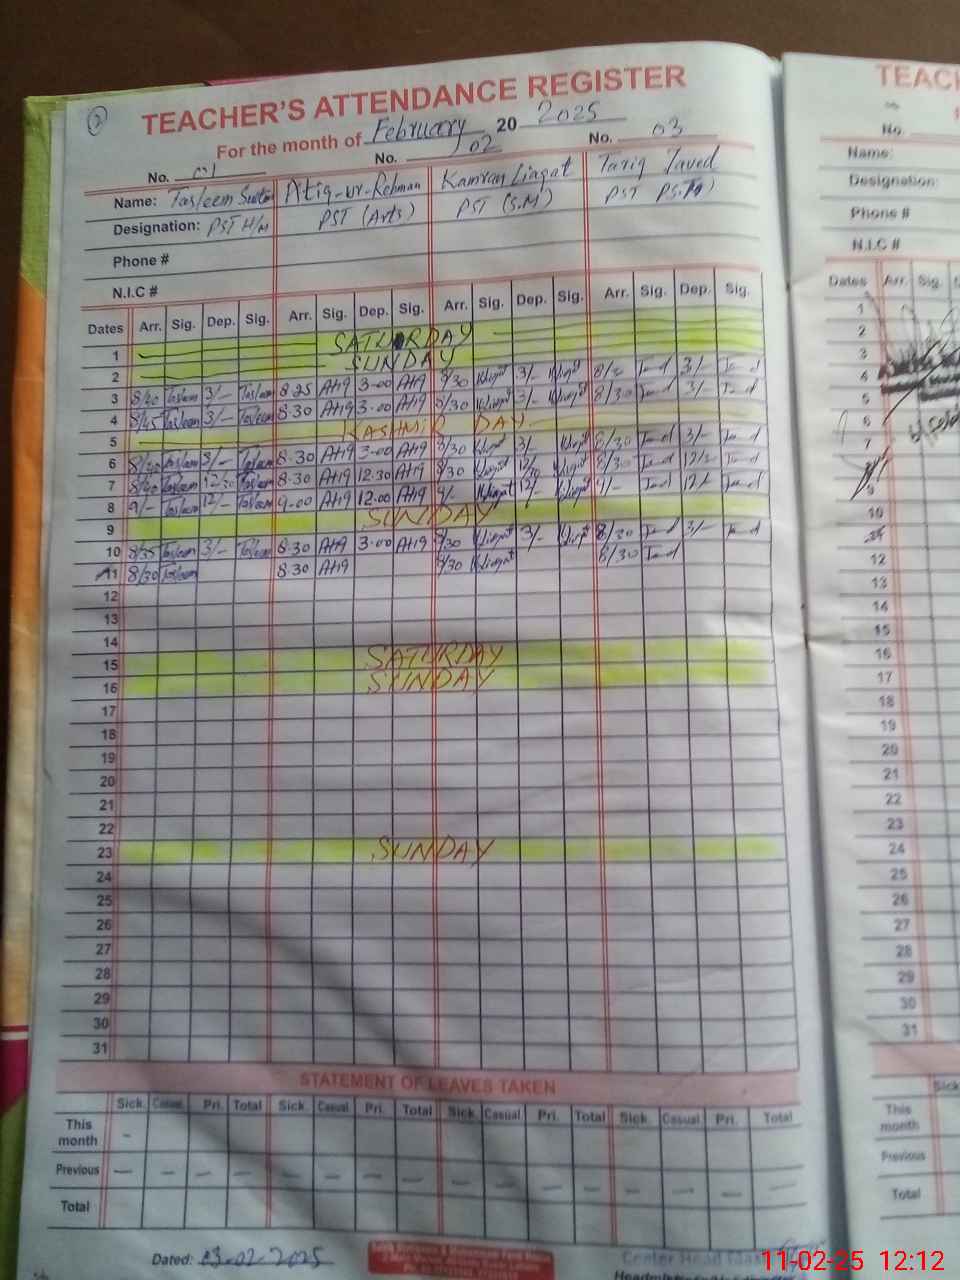 2
TEACHER'S ATTENDANCE REGISTER
For the month of February 20 2025
No. 01 No. 02 No. 03
Name: Tasleem Atiq-ur-Rehman Kamran Liaqat Tariq Javed
Designation: PST H/M PST (Arts) PST (S.M) PST
Phone #
N.I.C #
Dates Arr. Sig. Dep. Sig. Arr. Sig. Dep. Sig. Arr. Sig. Dep. Sig. Arr. Sig. Dep. Sig.
1 SATURDAY
2 SUNDAY
3 8/40 Tasleem 3/- Tasleem 8-25 Atiq 3-00 Atiq 8/30 Kliaqat 3/- Kliaqat 3/-
4 8/45 Tasleem 3/- Tasleem 8-30 Atiq 3-00 Atiq 8/30 Kliaqat 3/- Kliaqat 8/30 3/-
5 KASHMIR DAY
6 Tasleem 3/- Tasleem 8-30 Atiq 3-00 Atiq 8/30 Kliaqat 3/- Kliaqat 8/30 3/-
7 8/40 Tasleem 12/30 Tasleem 8-30 Atiq 12-30 Atiq 8/30 Kliaqat 12/30 Kliaqat 8/30
8 9/- Tasleem 12/- Tasleem 9-00 Atiq 12-00 Atiq 9/- Kliaqat 12/- Kliaqat 9/- 12/-
9 SUNDAY
10 8/35 Tasleem 3/- Tasleem 8-30 Atiq 3-00 Atiq 8/30 Kliaqat 3/- Kliaqat 8/30 3/-
11 8/30 Tasleem 8 30 Atiq 8/30 Kliaqat 8/30
12
13
14
15 SATURDAY
16 SUNDAY
17
18
19
20
21
22
23 SUNDAY
24
25
26
27
28
29
30
31
STATEMENT OF LEAVES TAKEN
Sick. Casual Pri. Total Sick. Casual Pri. Total Sick. Casual Pri. Total Sick. Casual Pri. Total
This month -
Previous — — — — — — — — — — — —
Total
Dated: 03-02-2025
Center Head
TEACH
No.
Name:
Designation:
Phone #
N.I.C #
Dates Arr. Sig.
1
2
3
4
5
6
7
9
10
12
13
14
15
16
17
18
19
20
21
22
23
24
25
26
27
28
29
30
31
Sick
This month
Previous
Total
11-02-25 12:12